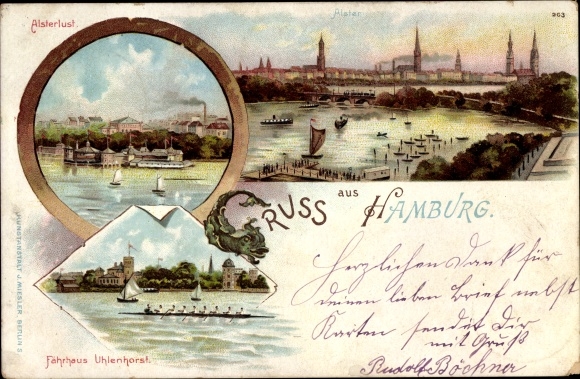 Alsterlust.
Alster
903
GRUSS aus HAMBURG.
Fährhaus Uhlenhorst.
KUNSTANSTALT J. MIESLER, BERLIN S.
Herzlichen Dank für
deinen lieben Brief nebst
Karten sendet Dir
mit Gruß
Rudolf Böchner